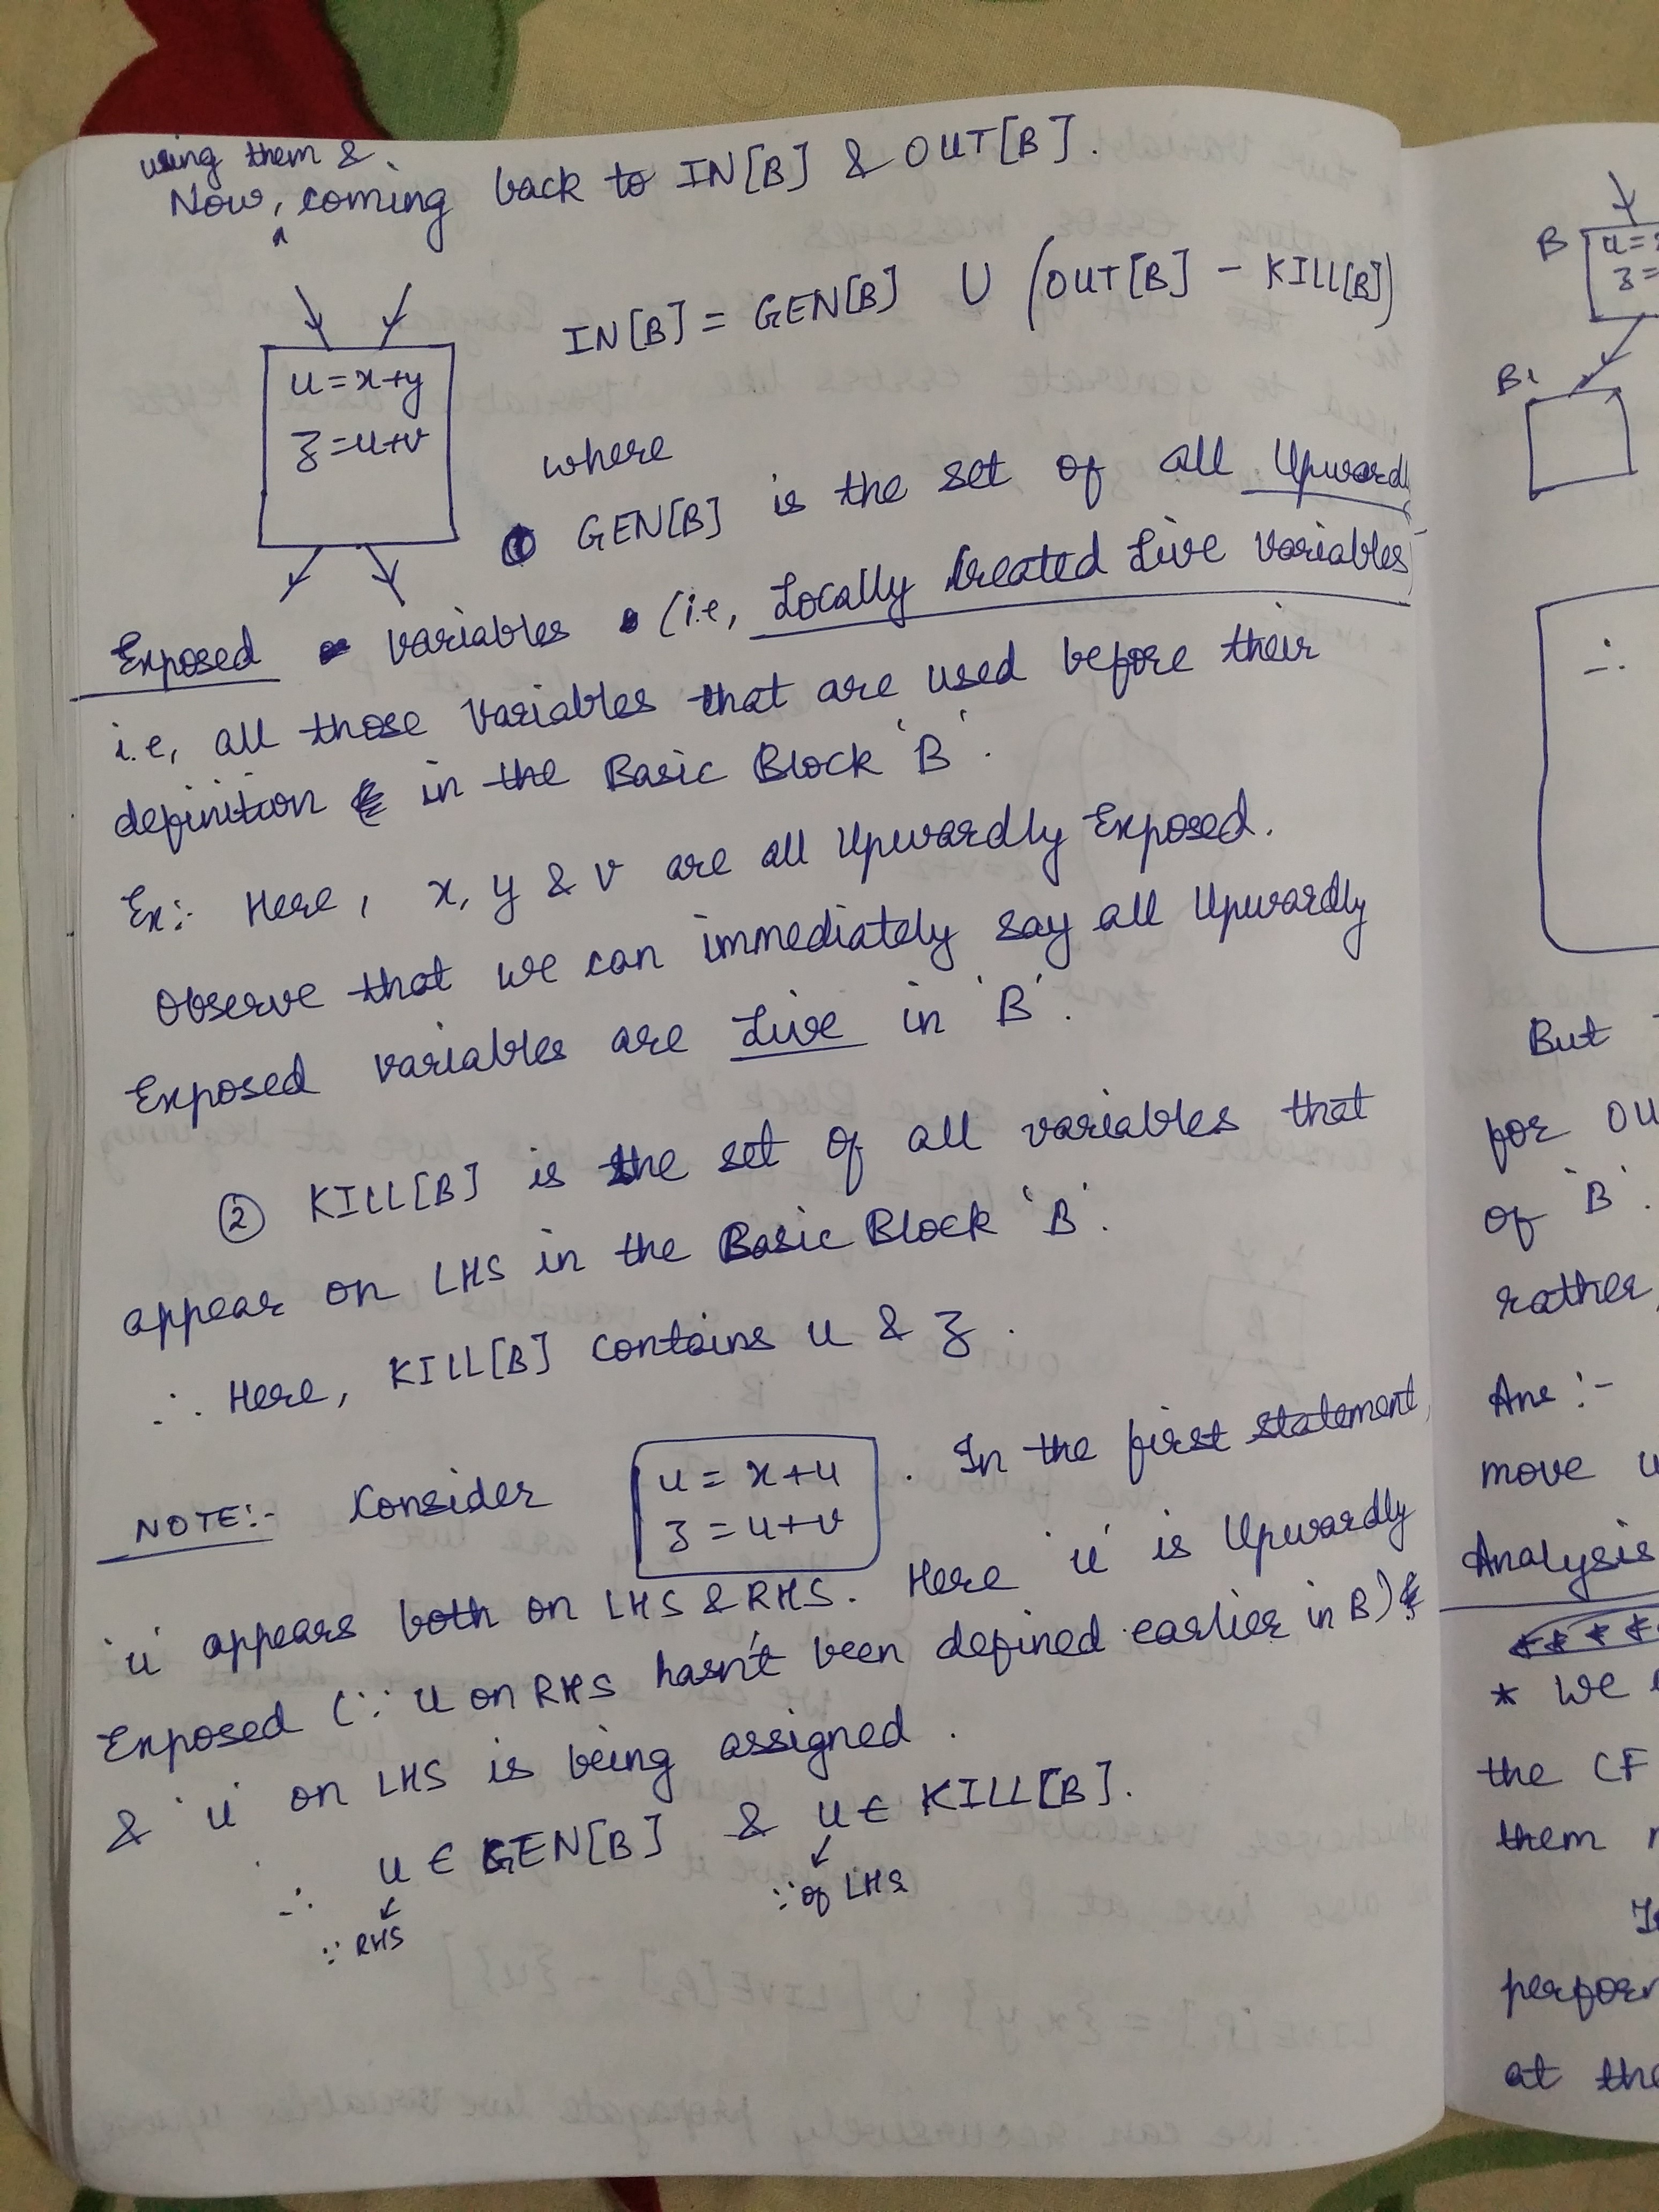 using them &
Now, coming back to IN[B] & OUT[B].
IN[B] = GEN[B] ∪ (OUT[B] - KILL[B])
u = x+y
z = u+v
where
① GEN[B] is the set of all Upwardly
Exposed variables (i.e, Locally Created Live Variables)
i.e, all those Variables that are used before their
definition in the Basic Block 'B'.
Ex:- Here, x, y & v are all Upwardly Exposed.
Observe that we can immediately say all Upwardly
Exposed variables are Live in 'B'.
② KILL[B] is the set of all variables that
appear on LHS in the Basic Block 'B'.
∴ Here, KILL[B] contains u & z.
NOTE:- Consider
u = x+u
z = u+v
. In the first statement,
'u' appears both on LHS & RHS. Here 'u' is Upwardly
Exposed (∵ u on RHS hasn't been defined earlier in B)
& 'u' on LHS is being assigned.
∴ u ∈ GEN[B] & u ∈ KILL[B].
∵ RHS
∵ of LHS
B
u=
z=
B1
∴
But
for OU
of 'B'.
rather,
Ans:-
move u
Analysis
* We
the CF
them
perfor
at the